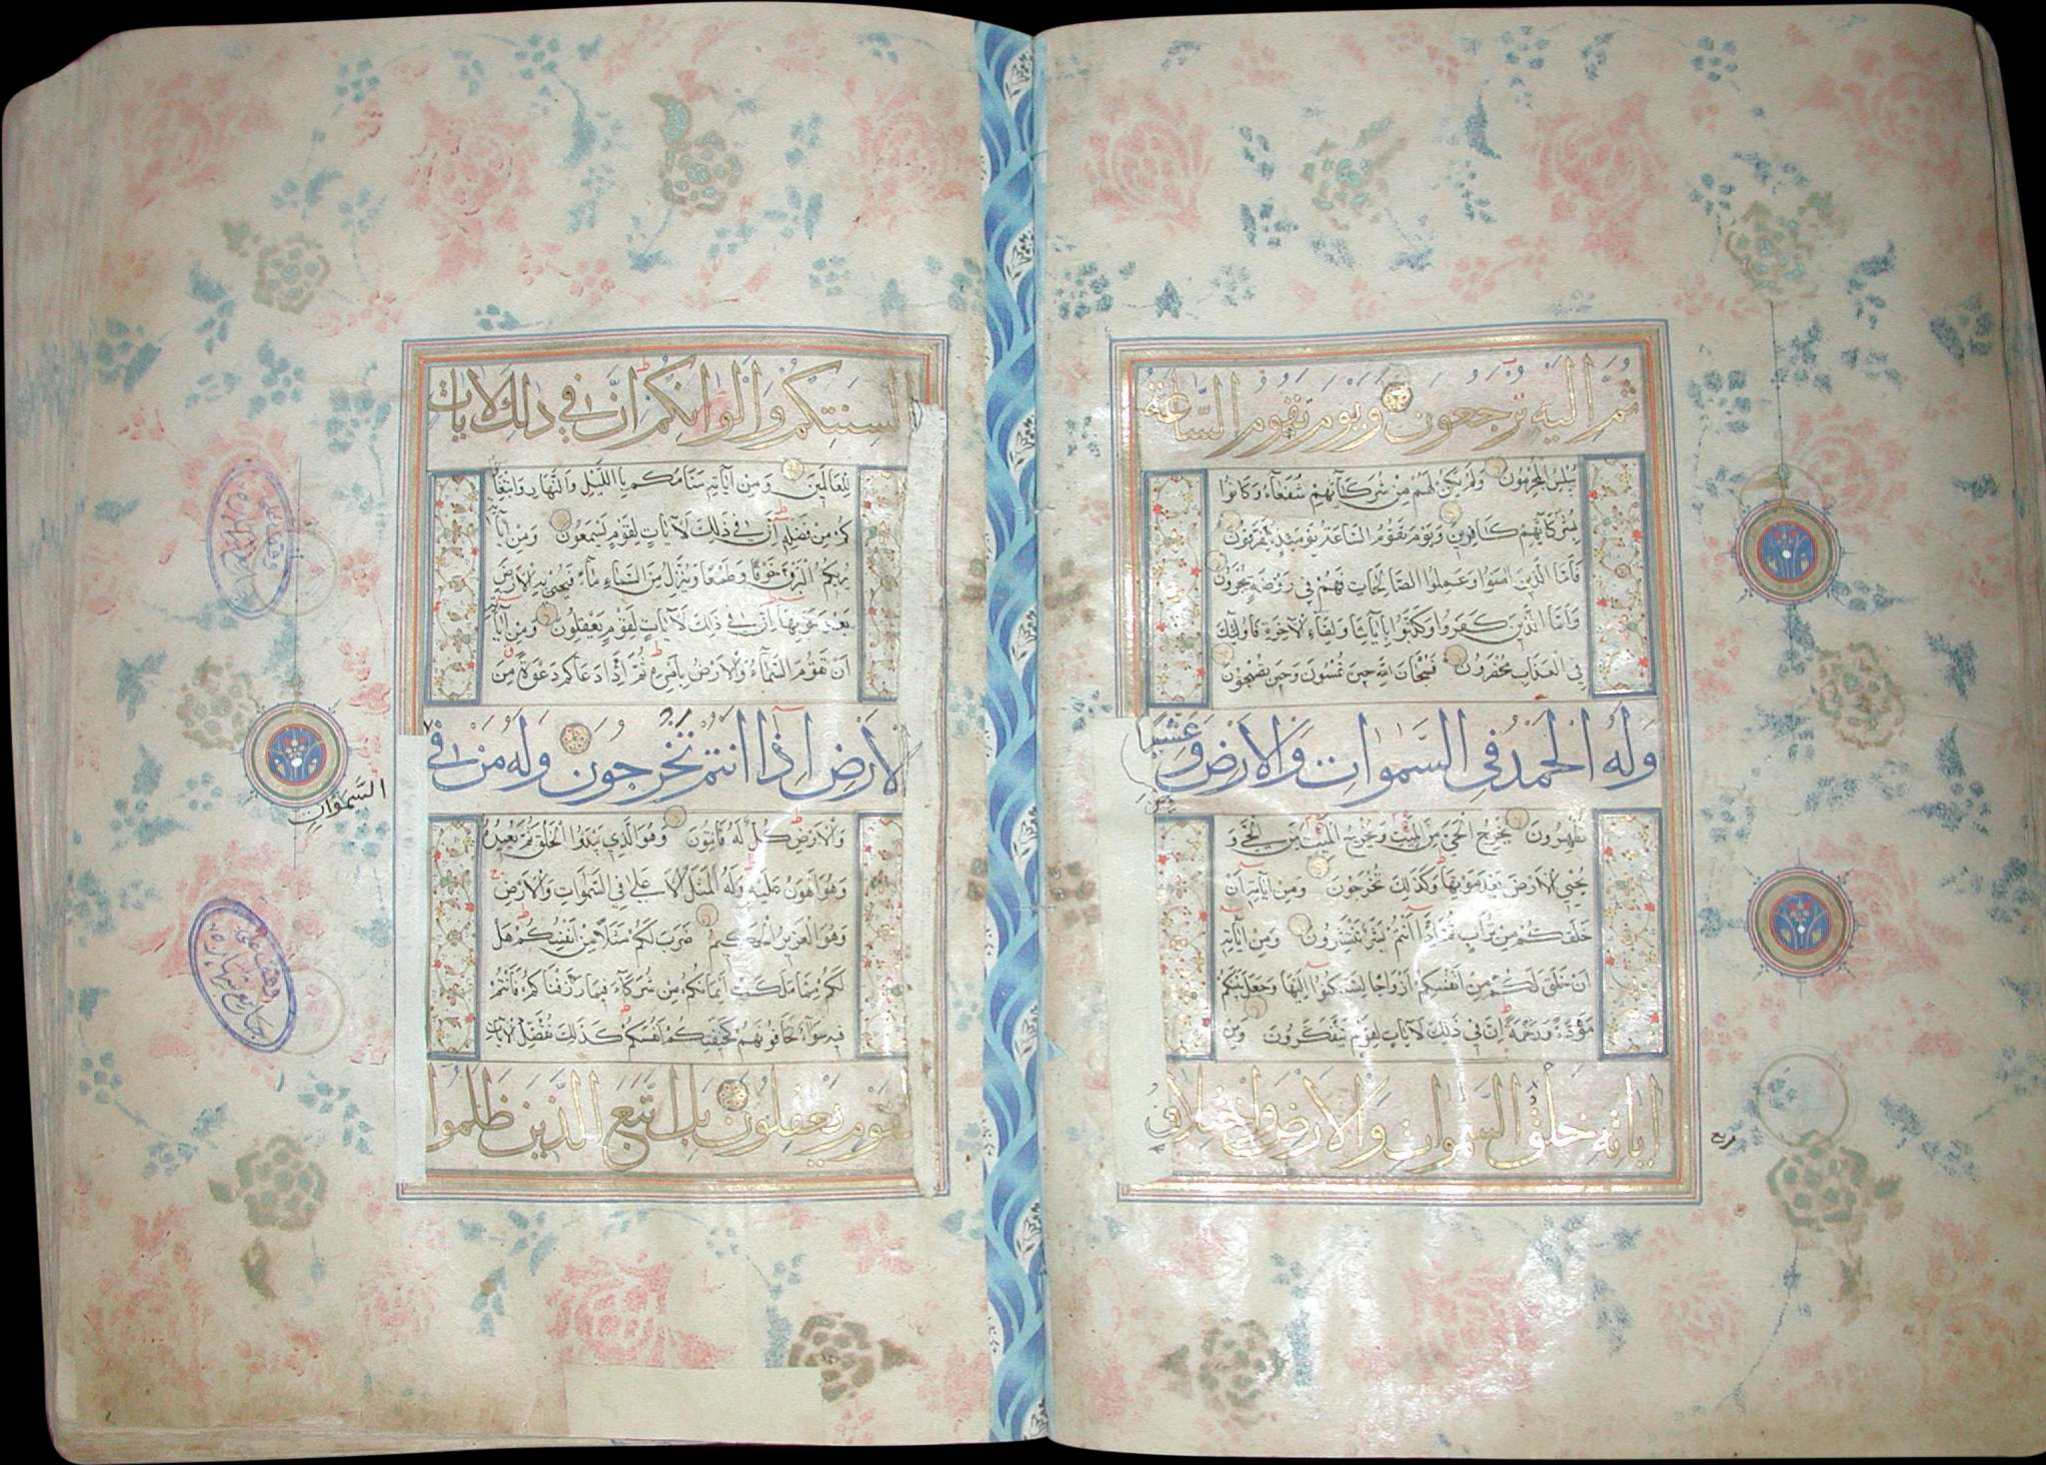 ثُمَّ اِلَيْهِ تُرْجَعُونَ وَيَوْمَ تَقُومُ السَّاعَةُ
يُبْلِسُ الْمُجْرِمُونَ وَلَمْ يَكُنْ لَهُمْ مِنْ شُرَكَآئِهِمْ شُفَعَآءُ وَكَانُوا
بِشُرَكَآئِهِمْ كَافِرِينَ وَيَوْمَ تَقُومُ السَّاعَةُ يَوْمَئِذٍ يَتَفَرَّقُونَ
فَاَمَّا الَّذِينَ اٰمَنُوا وَعَمِلُوا الصَّالِحَاتِ فَهُمْ فِي رَوْضَةٍ يُحْبَرُونَ
وَاَمَّا الَّذِينَ كَفَرُوا وَكَذَّبُوا بِاٰيَاتِنَا وَلِقَآءِ الْاٰخِرَةِ فَاُولٰئِكَ
فِي الْعَذَابِ مُحْضَرُونَ فَسُبْحَانَ اللّٰهِ حِينَ تُمْسُونَ وَحِينَ تُصْبِحُونَ
وَلَهُ الْحَمْدُ فِي السَّمٰوَاتِ وَالْاَرْضِ وَعَشِيًّا
وَحِينَ
تُظْهِرُونَ يُخْرِجُ الْحَيَّ مِنَ الْمَيِّتِ وَيُخْرِجُ الْمَيِّتَ مِنَ الْحَيِّ وَ
يُحْيِي الْاَرْضَ بَعْدَ مَوْتِهَا وَكَذٰلِكَ تُخْرَجُونَ وَمِنْ اٰيَاتِهٖ اَنْ
خَلَقَكُمْ مِنْ تُرَابٍ ثُمَّ اِذَا اَنْتُمْ بَشَرٌ تَنْتَشِرُونَ وَمِنْ اٰيَاتِهٖ
اَنْ خَلَقَ لَكُمْ مِنْ اَنْفُسِكُمْ اَزْوَاجًا لِتَسْكُنُوا اِلَيْهَا وَجَعَلَ بَيْنَكُمْ
مَوَدَّةً وَرَحْمَةً اِنَّ فِي ذٰلِكَ لَاٰيَاتٍ لِقَوْمٍ يَتَفَكَّرُونَ وَمِنْ
اٰيَاتِهٖ خَلْقُ السَّمٰوَاتِ وَالْاَرْضِ وَاخْتِلَافُ
ربع
اَلْسِنَتِكُمْ وَاَلْوَانِكُمْ اِنَّ فِي ذٰلِكَ لَاٰيَاتٍ
لِلْعَالَمِينَ وَمِنْ اٰيَاتِهٖ مَنَامُكُمْ بِاللَّيْلِ وَالنَّهَارِ وَابْتِغَاؤُ
كُمْ مِنْ فَضْلِهٖ اِنَّ فِي ذٰلِكَ لَاٰيَاتٍ لِقَوْمٍ يَسْمَعُونَ وَمِنْ اٰيَاتِهٖ
يُرِيكُمُ الْبَرْقَ خَوْفًا وَطَمَعًا وَيُنَزِّلُ مِنَ السَّمَآءِ مَآءً فَيُحْيِي بِهِ الْاَرْضَ
بَعْدَ مَوْتِهَا اِنَّ فِي ذٰلِكَ لَاٰيَاتٍ لِقَوْمٍ يَعْقِلُونَ وَمِنْ اٰيَاتِهٖ
اَنْ تَقُومَ السَّمَآءُ وَالْاَرْضُ بِاَمْرِهٖ ثُمَّ اِذَا دَعَاكُمْ دَعْوَةً مِنَ
الْاَرْضِ اِذَا اَنْتُمْ تَخْرُجُونَ وَلَهُ مَنْ فِي
السَّمٰوَاتِ
وَالْاَرْضِ كُلٌّ لَهُ قَانِتُونَ وَهُوَ الَّذِي يَبْدَؤُا الْخَلْقَ ثُمَّ يُعِيدُهُ
وَهُوَ اَهْوَنُ عَلَيْهِ وَلَهُ الْمَثَلُ الْاَعْلٰى فِي السَّمٰوَاتِ وَالْاَرْضِ
وَهُوَ الْعَزِيزُ الْحَكِيمُ ضَرَبَ لَكُمْ مَثَلًا مِنْ اَنْفُسِكُمْ هَلْ
لَكُمْ مِمَّا مَلَكَتْ اَيْمَانُكُمْ مِنْ شُرَكَآءَ فِيمَا رَزَقْنَاكُمْ فَاَنْتُمْ
فِيهِ سَوَآءٌ تَخَافُونَهُمْ كَخِيفَتِكُمْ اَنْفُسَكُمْ كَذٰلِكَ نُفَصِّلُ الْاٰيَاتِ
لِقَوْمٍ يَعْقِلُونَ بَلِ اتَّبَعَ الَّذِينَ ظَلَمُوا